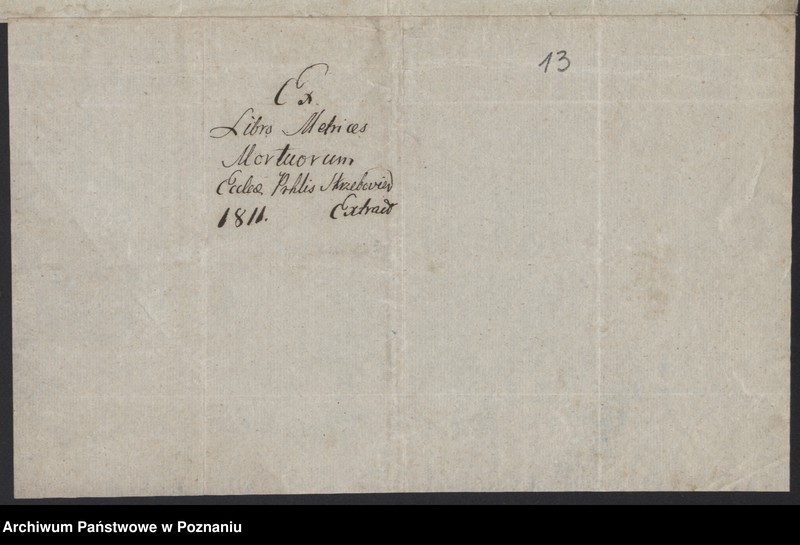 13
Ex
Libro Metrices
Mortuorum
Eccleæ Prhlis Strzeboviens
1811. Extract
Archiwum Państwowe w Poznaniu